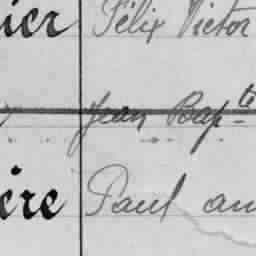 ier Félix Victor
Jean Bapte
ère Paul an